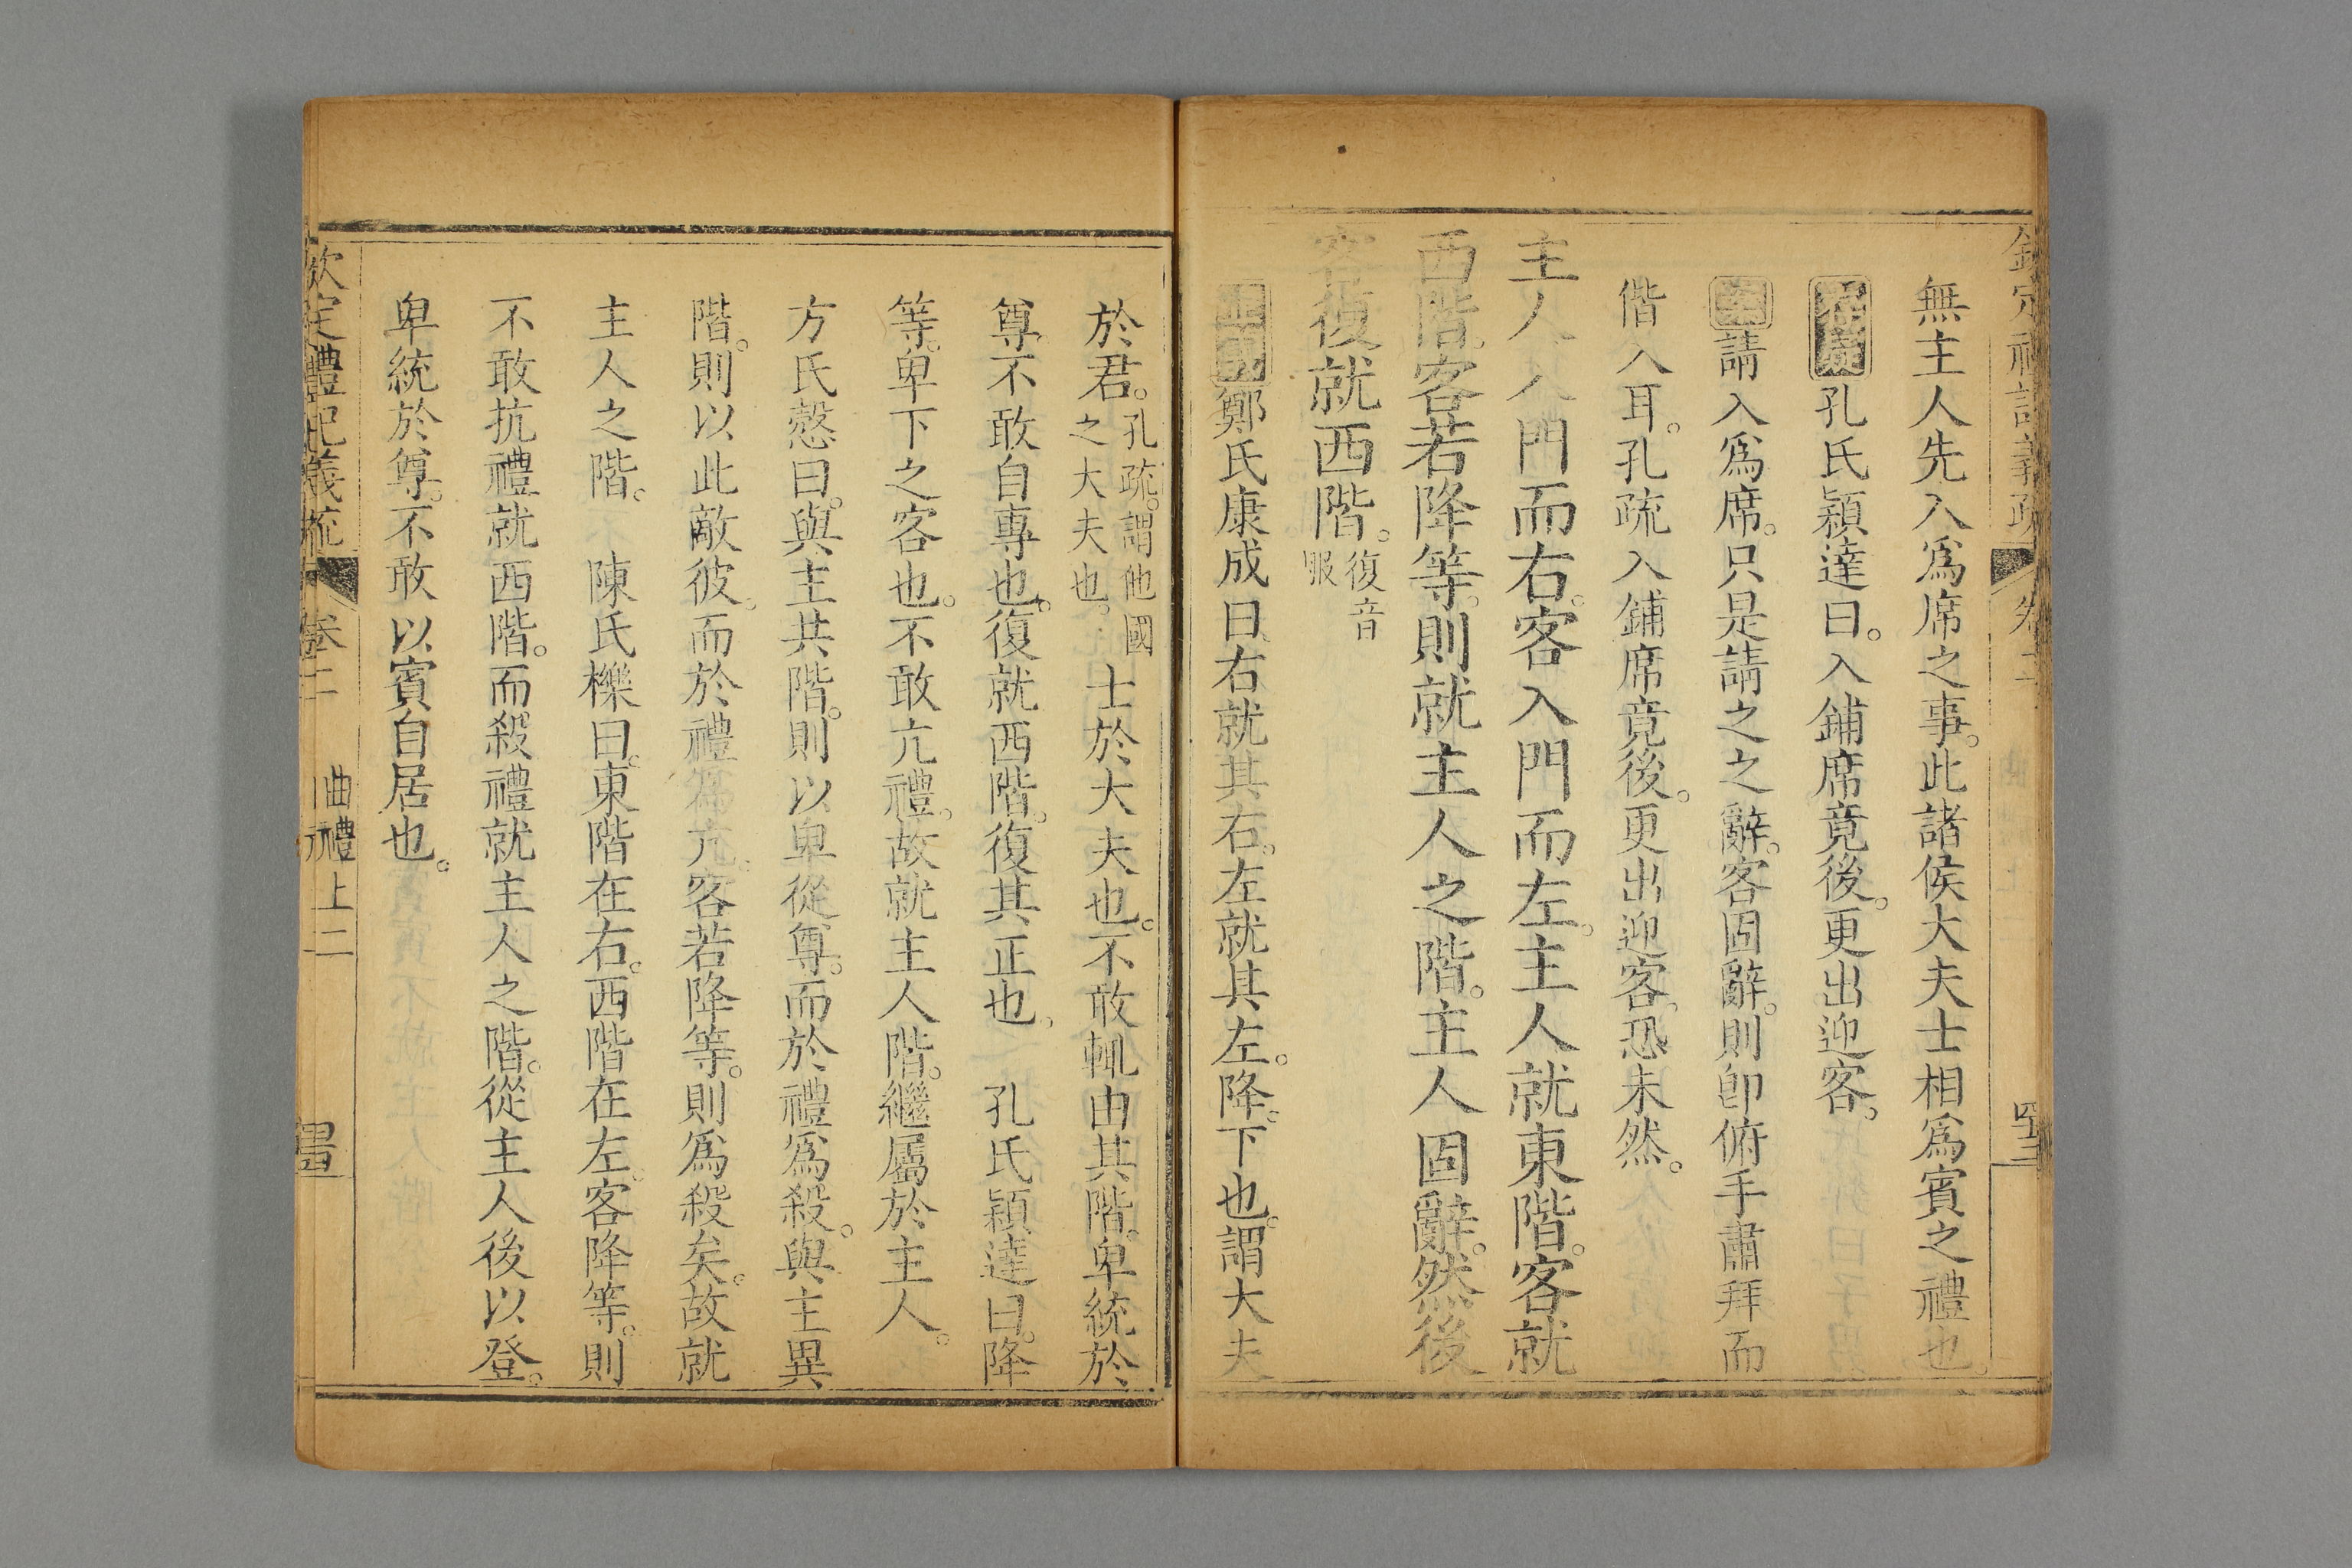 無主人先入爲席之事。此諸侯大夫士相爲賓之禮也。
存疑孔氏穎達曰。入鋪席竟後。更出迎客。
案請入爲席。只是請之之辭。客固辭。則卽俯手肅拜而
偕入耳。孔疏入鋪席竟後。更出迎客。恐未然。
主人入門而右。客入門而左。主人就東階。客就
西階。客若降等。則就主人之階。主人固辭。然後
客復就西階。復音服
正義鄭氏康成曰。右就其右。左就其左。降。下也。謂大夫
於君。孔疏。謂他國之大夫也。士於大夫也。不敢輒由其階。卑統於
尊。不敢自專也。復就西階。復其正也。 孔氏穎達曰。降
等。卑下之客也。不敢亢禮。故就主人階。繼屬於主人。
方氏慤曰。與主共階。則以卑從尊。而於禮爲殺。與主異
階。則以此敵彼。而於禮爲亢。客若降等。則爲殺矣。故就
主人之階。 陳氏櫟曰。東階在右。西階在左。客降等。則
不敢抗禮就西階。而殺禮就主人之階。從主人後以登。
卑統於尊。不敢以賓自居也。
欽定禮記義疏 卷二 曲禮上二